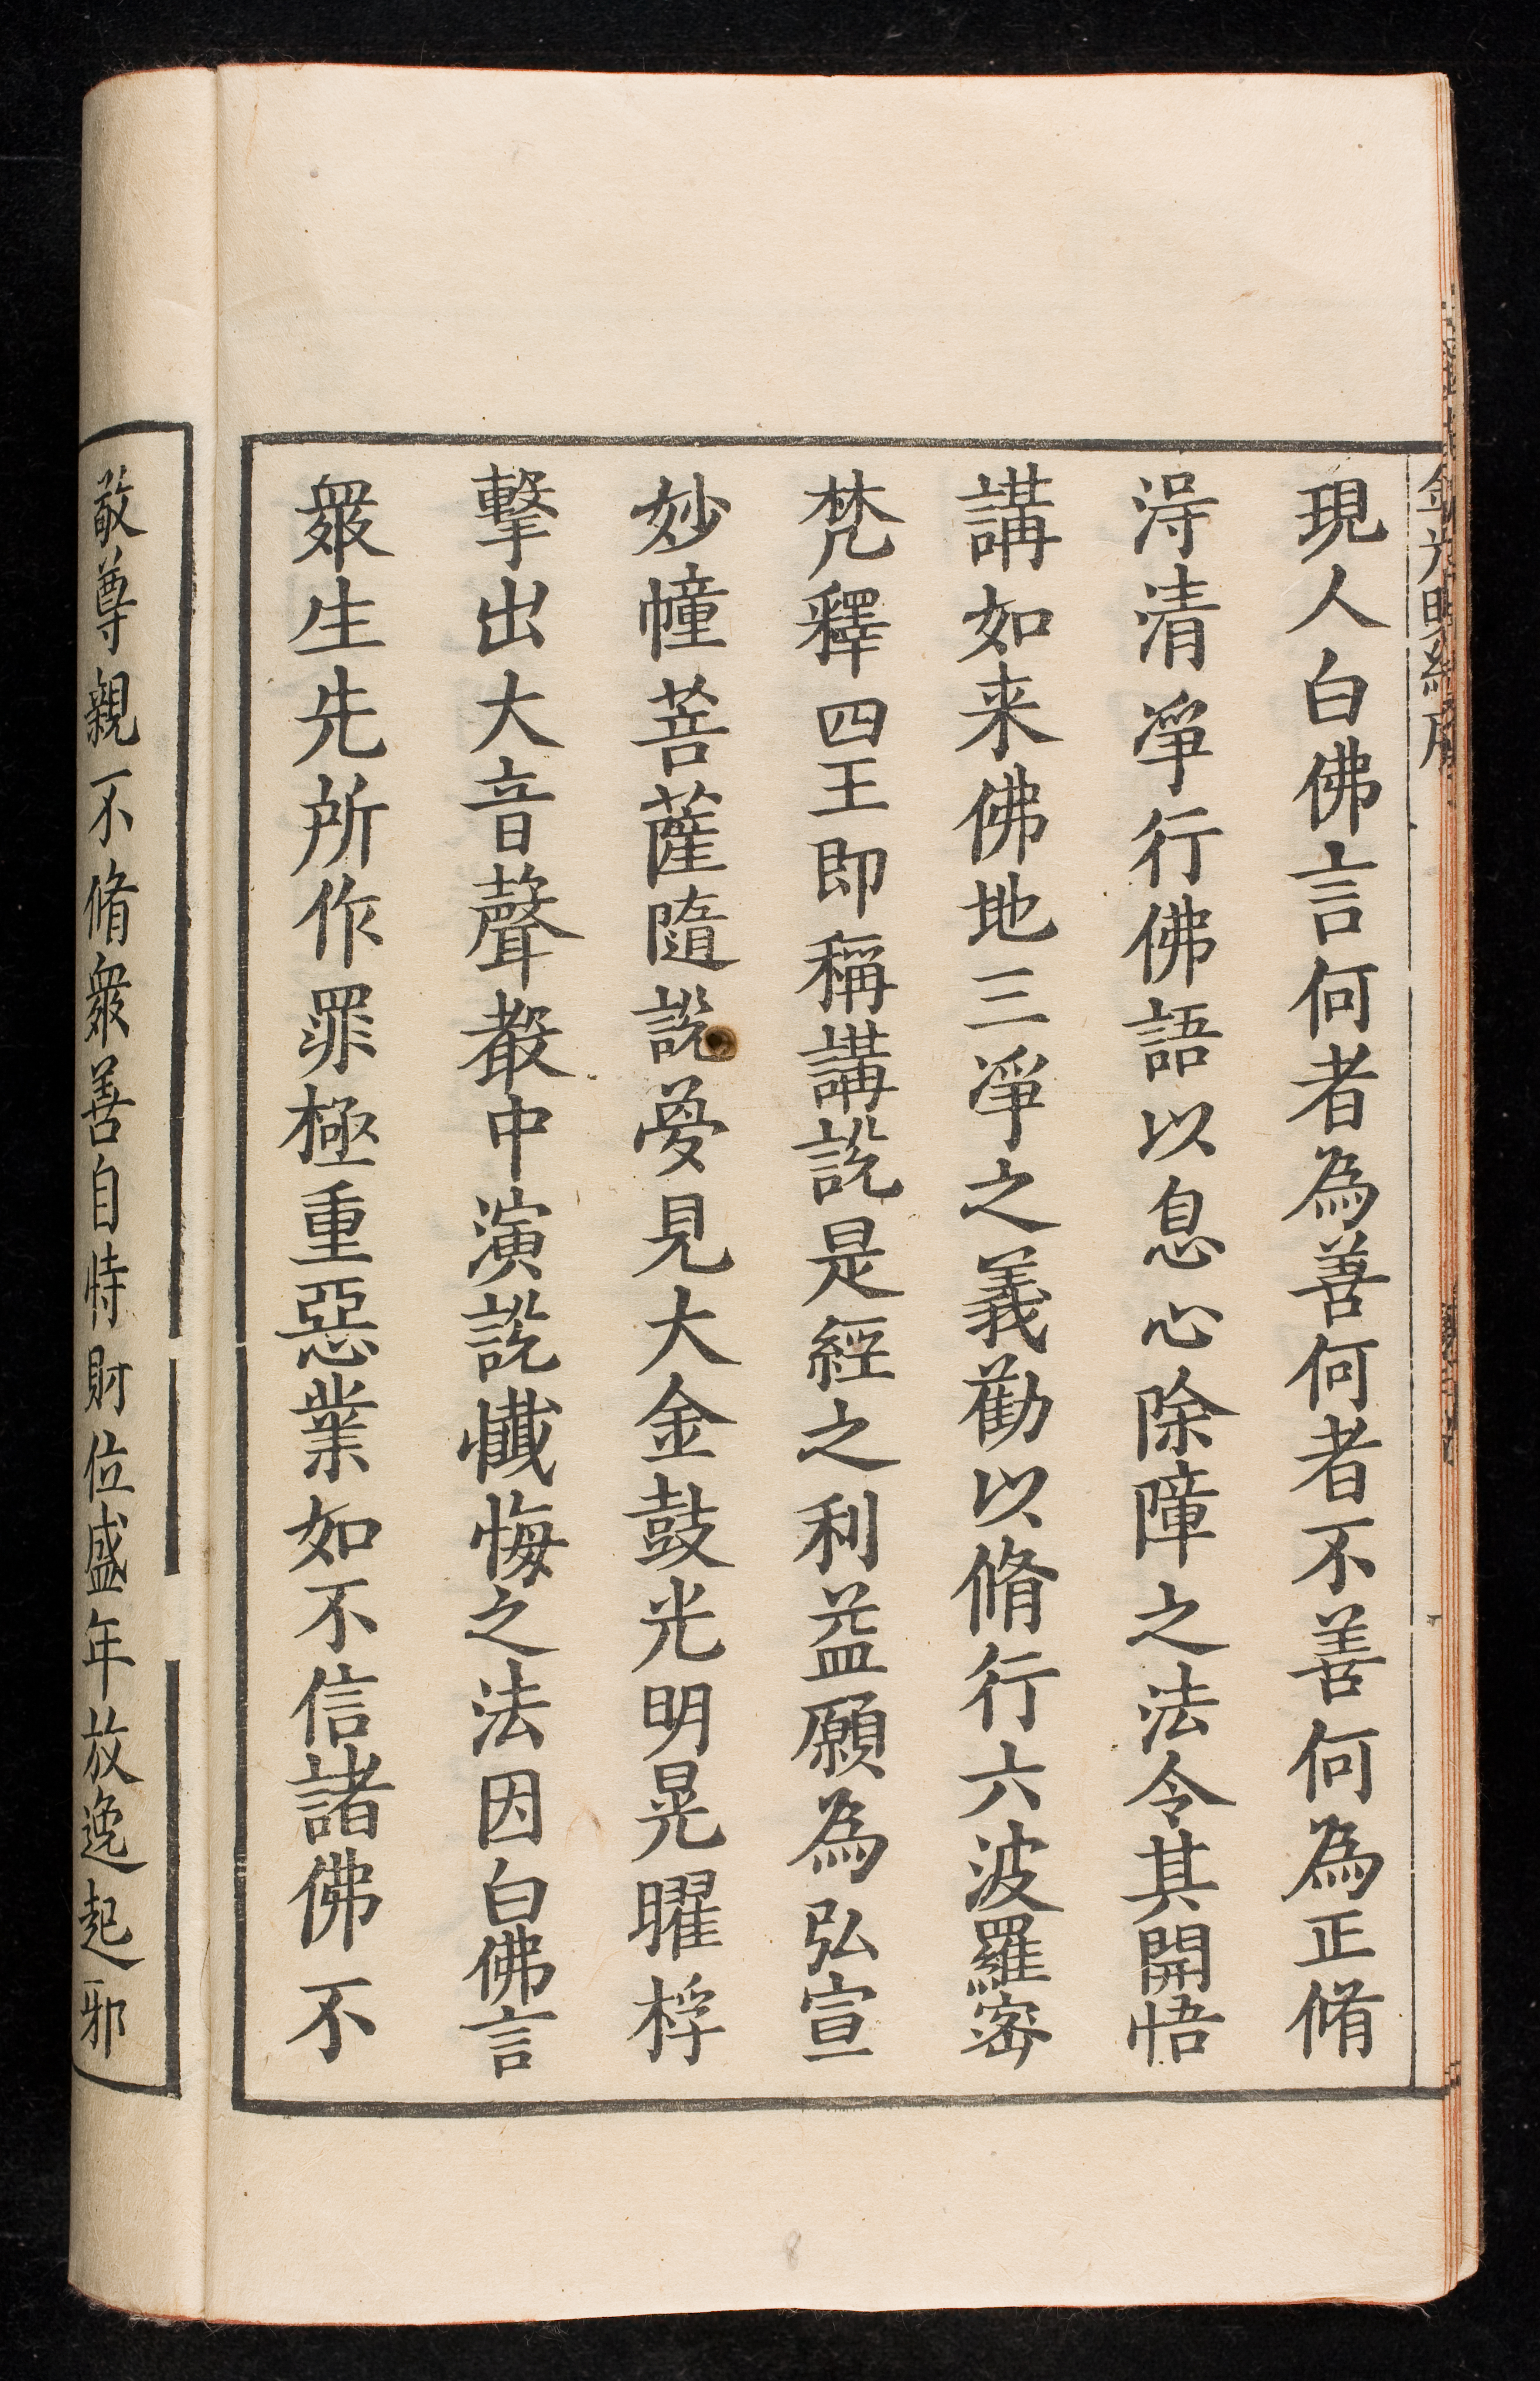 金光明經序
現人白佛言何者為善何者不善何為正脩
淂清淨行佛語以息心除障之法令其開悟
講如来佛地三淨之義勸以脩行六波羅密
梵釋四王即稱講說是經之利益願為弘宣
妙幢菩薩隨說夢見大金鼓光明晃曜桴
擊出大音聲聲中演說懺悔之法因白佛言
衆生先所作罪極重惡業如不信諸佛不
敬尊親不脩衆善自恃財位盛年放逸起邪